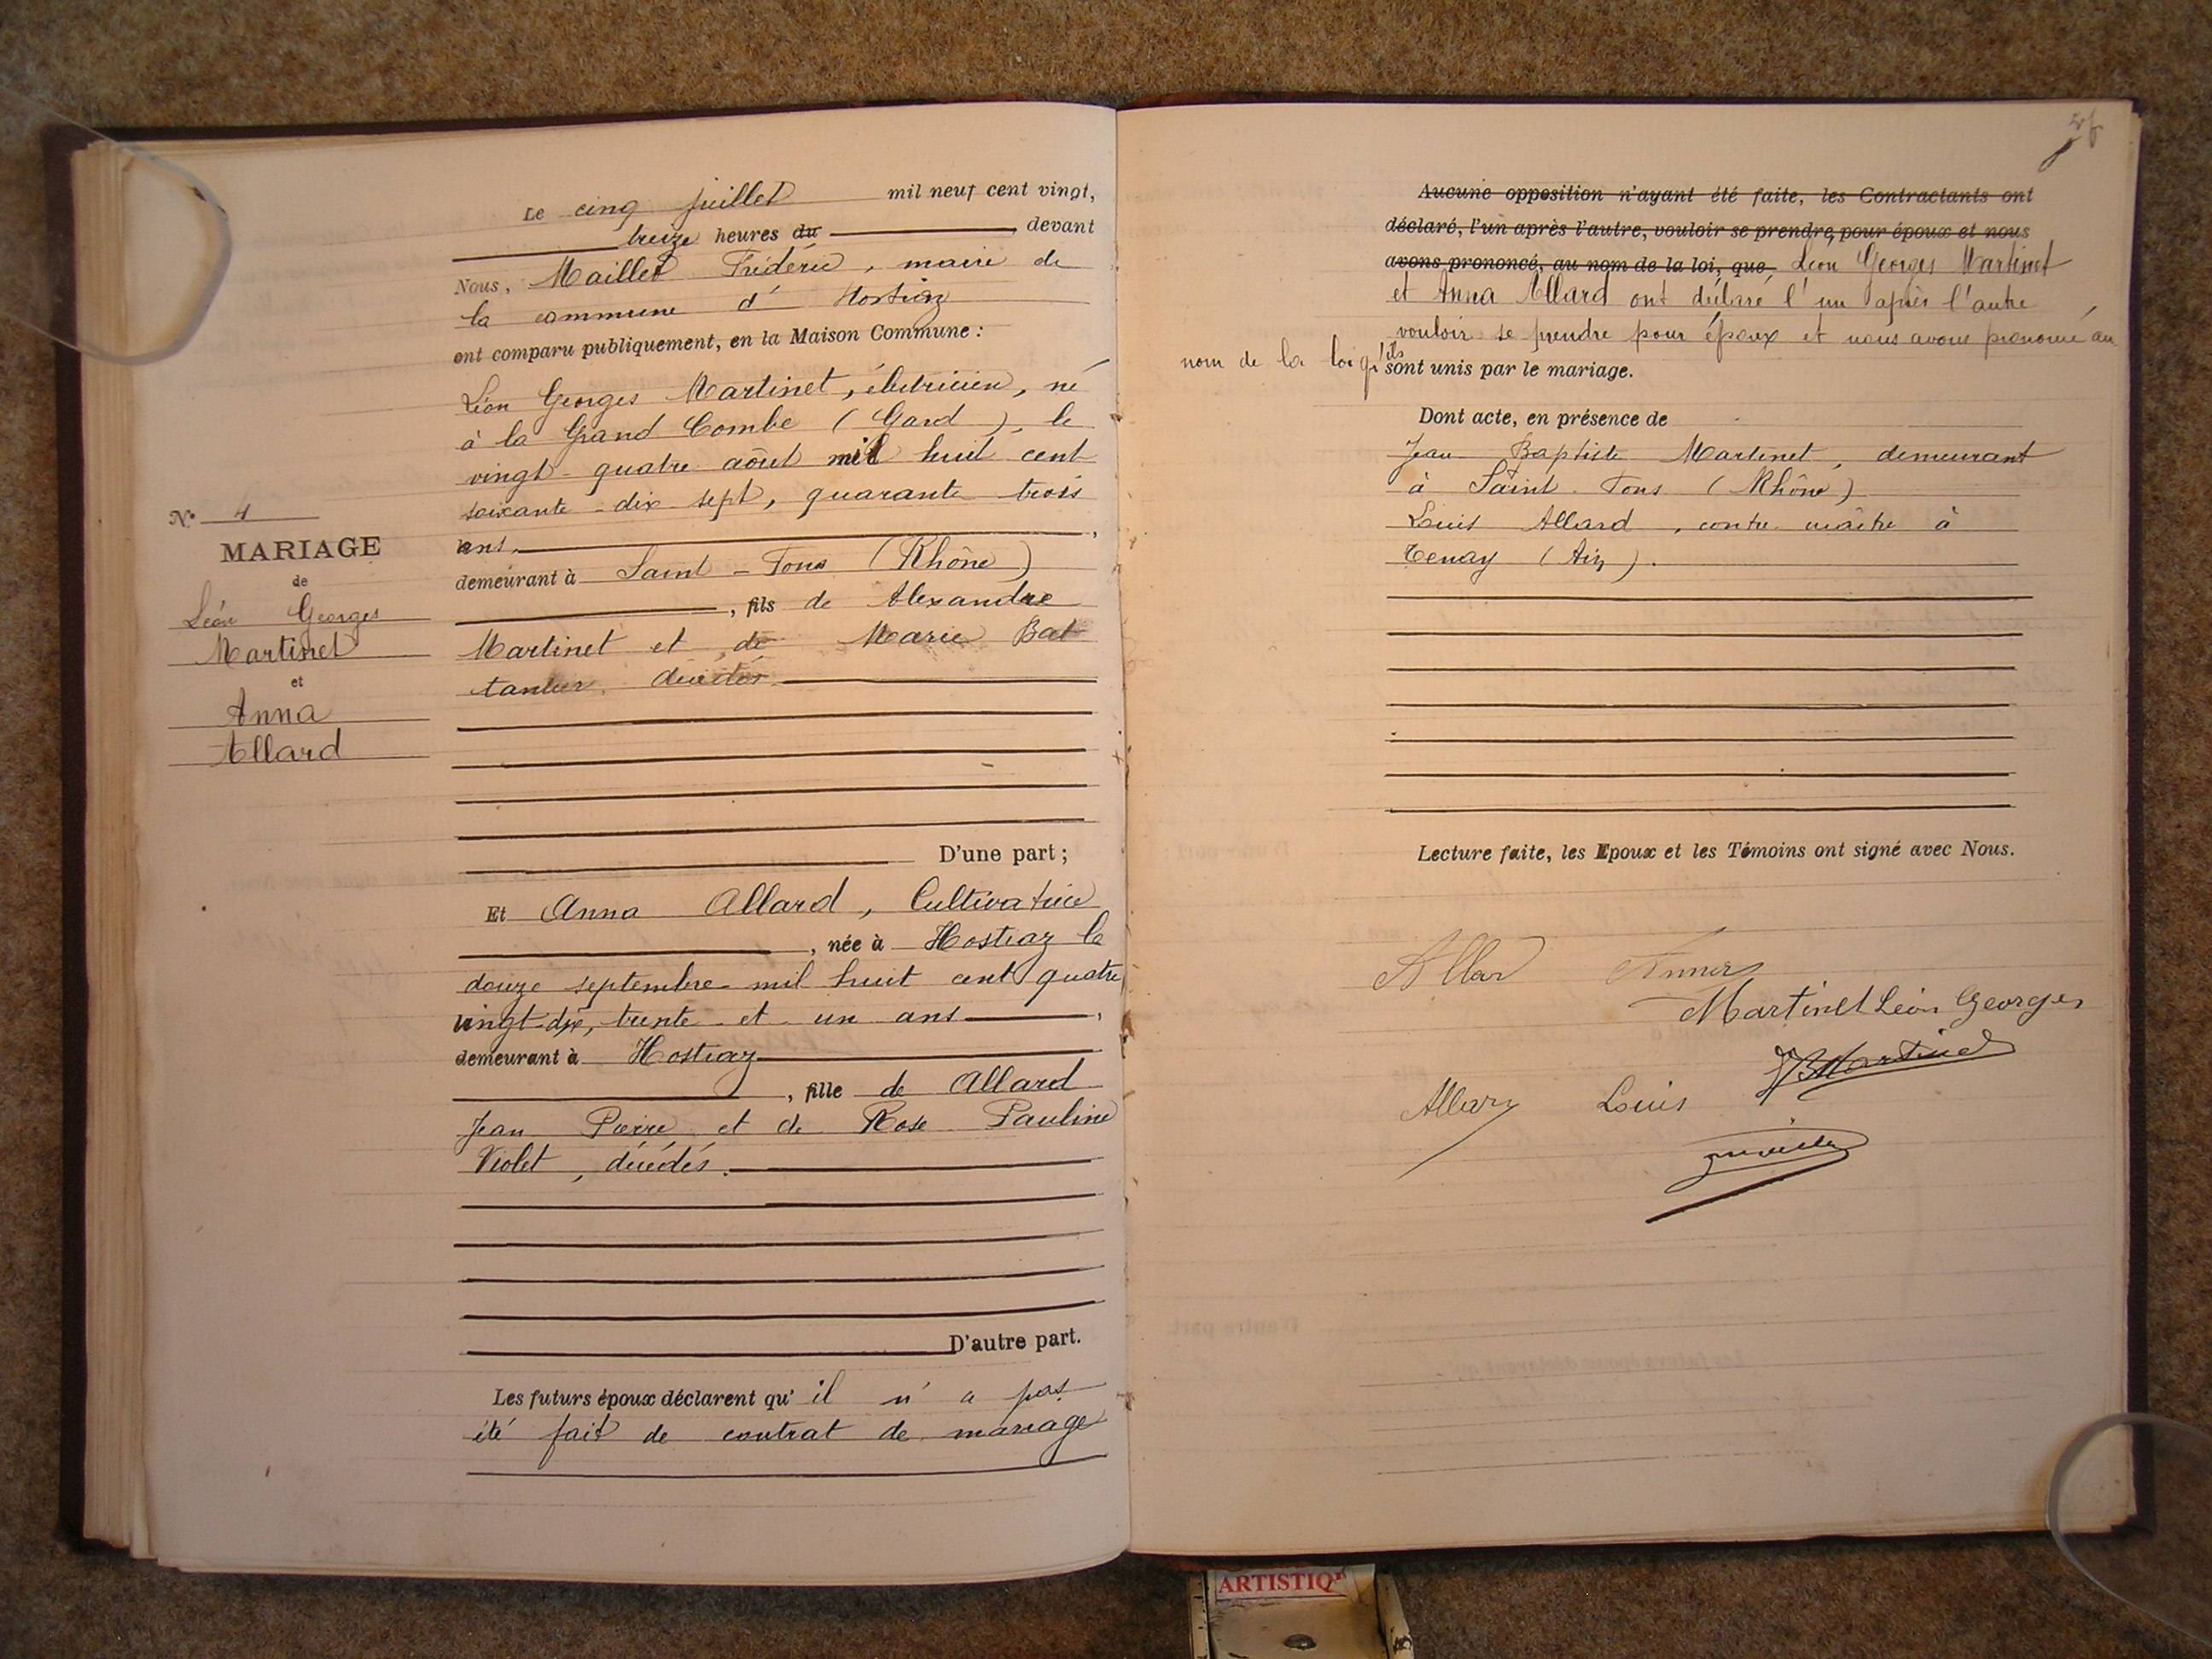 N° 4
MARIAGE
de
Léon Georges
Martinet
et
Anna
Allard
Le cinq juillet mil neuf cent vingt,
treize heures du devant
Nous, Maillet Frédéric, maire de
la commune d' Hostiaz
ont comparu publiquement, en la Maison Commune :
Léon Georges Martinet, électricien, né
à la Grand Combe (Gard), le
vingt-quatre août mil huit cent
soixante-dix sept, quarante trois
ans,
demeurant à Saint-Fons (Rhône)
, fils de Alexandre
Martinet et de Marie Bat
décédés
D'une part ;
Et Anna Allard, Cultivatrice
, née à Hostiaz le
douze septembre mil huit cent quatre
vingt-dix, trente et un ans,
demeurant à Hostiaz
, fille de Allard
Jean Pierre et de Rose Pauline
Violet, décédés.
D'autre part.
Les futurs époux déclarent qu'il n'a pas
été fait de contrat de mariage
Aucune opposition n'ayant été faite, les Contractants ont
déclaré, l'un après l'autre, vouloir se prendre pour époux et nous
avons prononcé, au nom de la loi, que Léon Georges Martinet
et Anna Allard ont déclaré l'un après l'autre
vouloir se prendre pour époux et nous avons prononcé au
nom de la loi qu'ils sont unis par le mariage.
Dont acte, en présence de
Jean Baptiste Martinet, demeurant
à Saint-Fons (Rhône)
Louis Allard, contre maître à
Tenay (Ain).
Lecture faite, les Epoux et les Témoins ont signé avec Nous.
Martinet Léon Georges
JB Martinet
Louis
ARTISTIQ